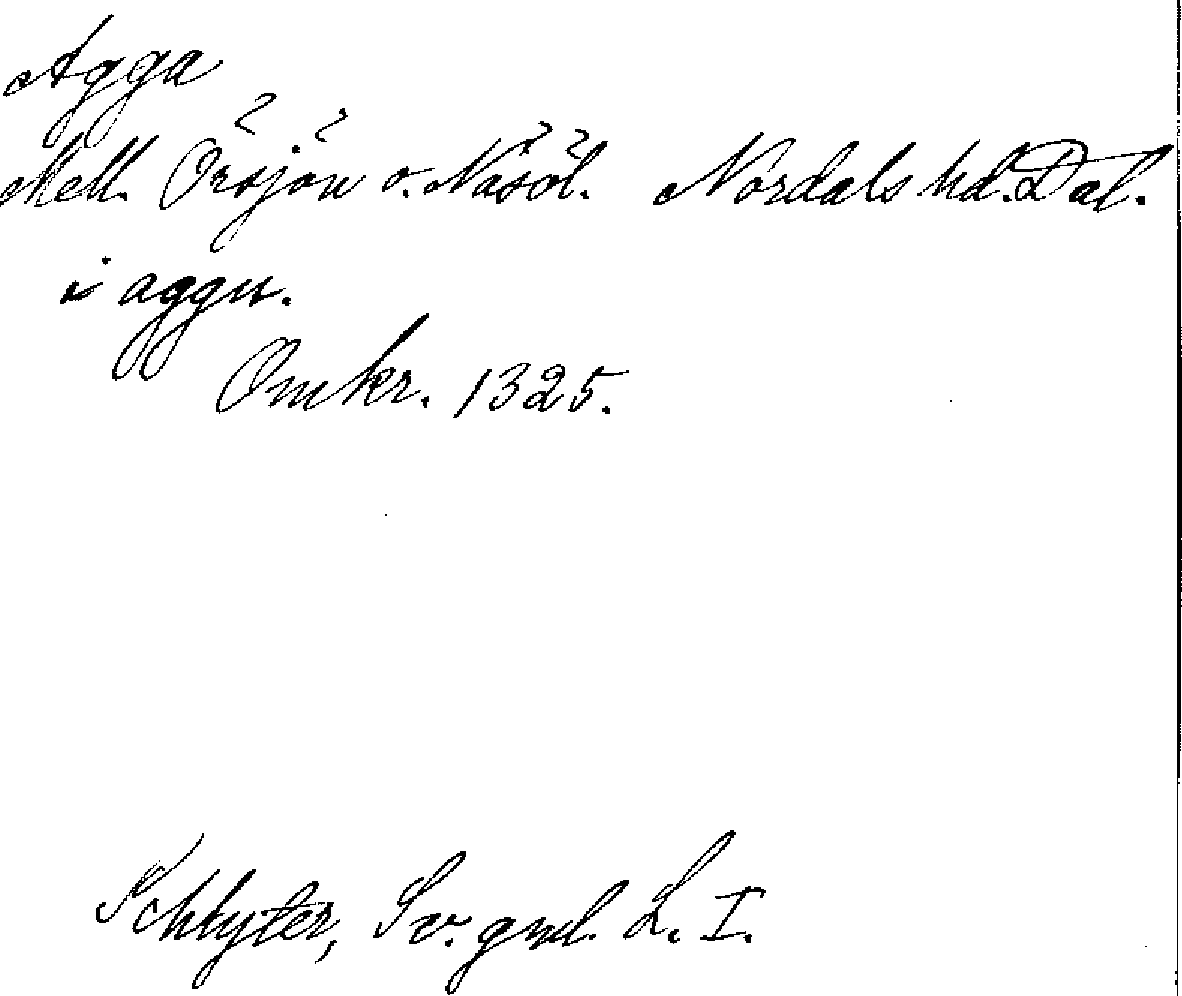 Agga
Mell. Örsjön o. Nasöl. Nordals hd. Dal.
i aggu.
Omkr. 1325.
Schlyter, Sv. gml. L. I.